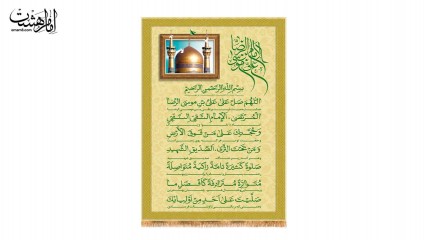 امام هشت
emam8.com
بسم الله الرحمن الرحیم
اللهم صل علی علی بن موسی الرضا
المرتضی، الإمام التقی النقی
و حجتک علی من فوق الأرض
و من تحت الثری، الصدیق الشهید
صلوة کثیرة تامة زاکیة متواصلة
متواترة مترادفة کأفضل ما
صلیت علی أحد من أولیائک